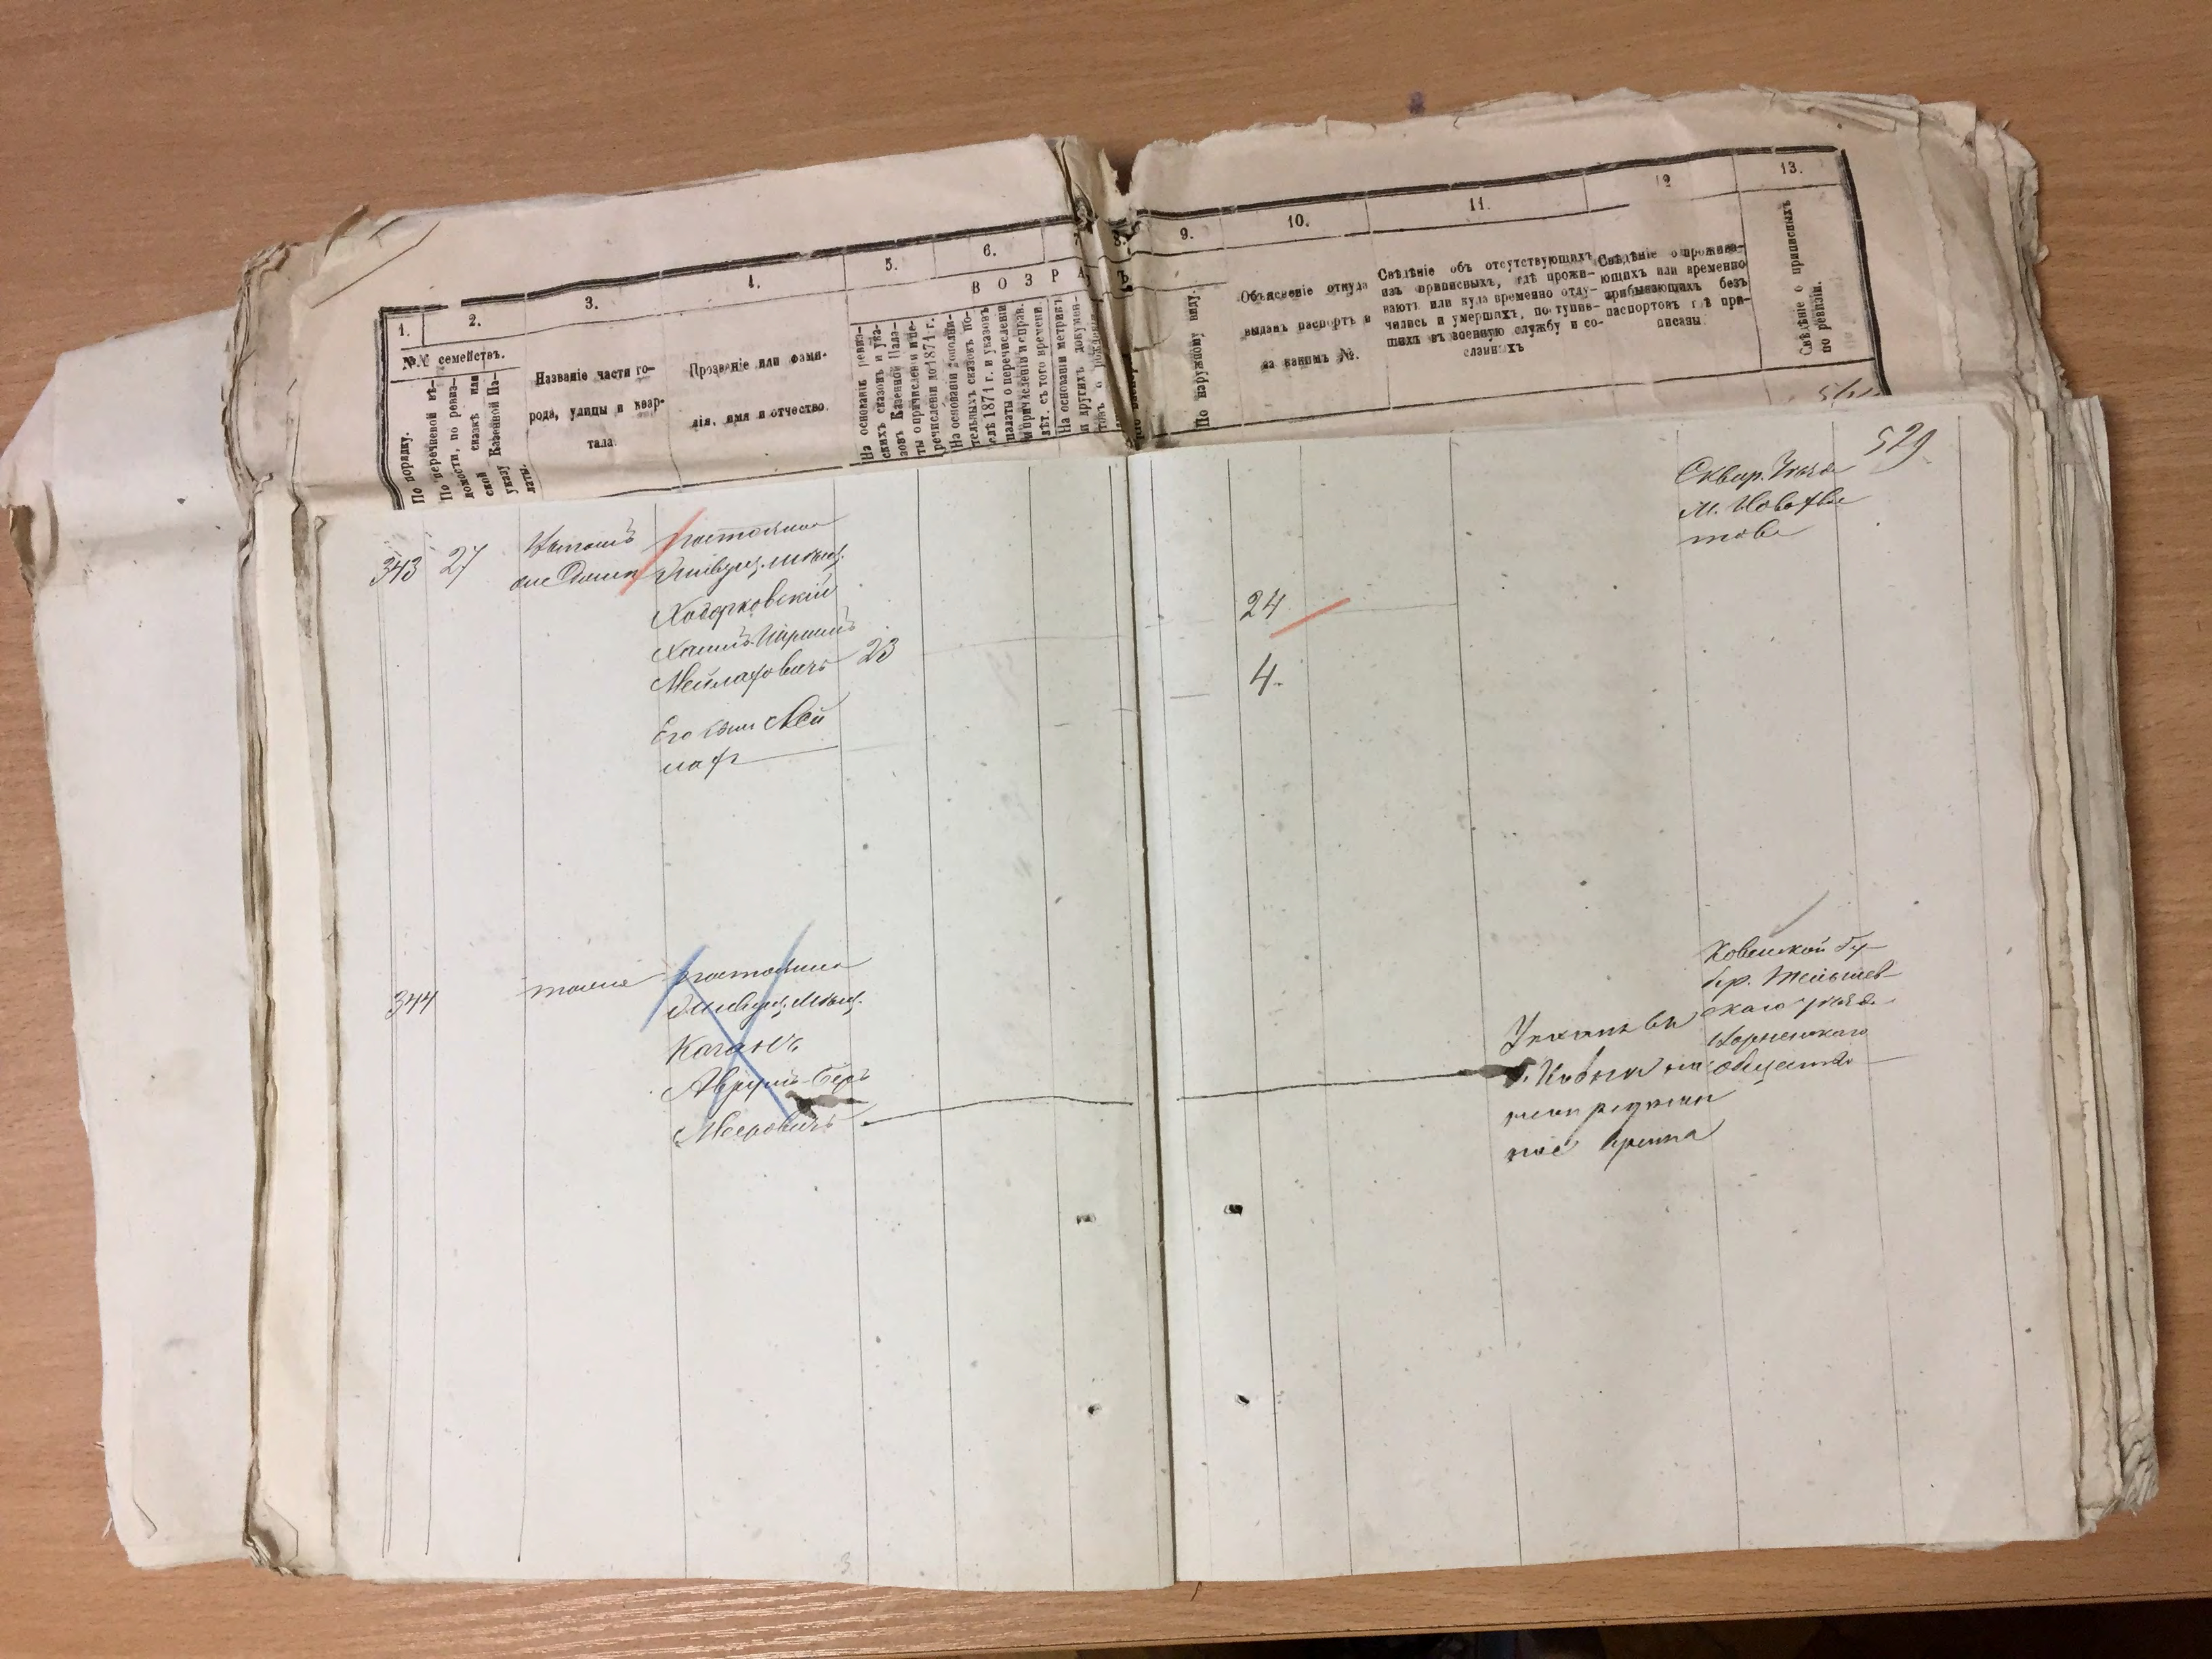 1.
2.
3.
4.
5.
6.
9.
10.
11.
12
13.
В О З Р А
№№ семействъ.
По порядку.
По перечневой вѣ-
домости, по ревиз-
ской сказкѣ или
указу Казенной Па-
латы.
Названіе части го-
рода, улицы и квар-
тала.
Прозваніе или фами-
лія, имя и отчество.
На основаніи ревиз-
скихъ сказокъ и ука-
зовъ Казенной Пала-
ты о причисленіи и пе-
речисленіи до 1871 г.
На основаніи дополни-
тельныхъ сказокъ по-
слѣ 1871 г. и указовъ
палаты о перечисленіи
и причисленіи и прав.
лѣт. съ того времени.
На основаніи метрикъ
и другихъ докумен-
товъ о рожденіи
По наружному виду.
Объясненіе откуда
выданъ паспортъ и
за какимъ №.
Свѣдѣніе объ отсутствующихъ
изъ приписныхъ, гдѣ прожи-
ваютъ или куда временно отлу-
чились и умершихъ, поступив-
шихъ въ военную службу и со-
сланныхъ
Свѣдѣніе о прожива-
ющихъ или временно
прибывающихъ безъ
паспортовъ гдѣ при-
писаны
Свѣдѣніе о приписныхъ
по ревизіи.
529
343 27
постоянно
живущ. мѣщ.
Ходорковскій
Хаимъ
Мейлаховичъ 23
Его сынъ Мей
лахъ
24
4.
Сквир. Уѣзда
м. Новофас
това
344
тоже
постоянно
живущ. мѣщ.
Каганъ
Аврумъ-Беръ
Мееровичъ
Уѣханъ въ
г. Ковну на
время
Ковенской Гу-
бер. Тельшев-
скаго уѣзда
общества